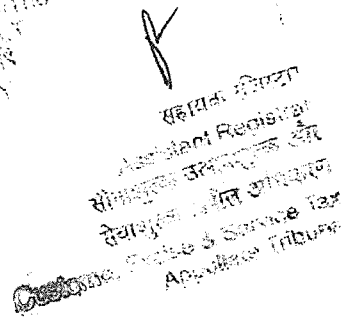 सहायक रजिस्ट्रार
Assistant Registrar
सीमाशुल्क उत्पादशुल्क और
सेवाशुल्क अपील अधिकरण
Customs, Excise & Service Tax
Appellate Tribunal